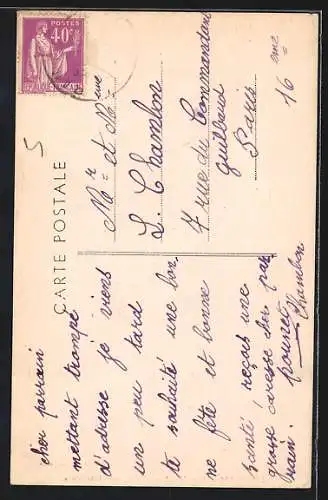 POSTES
40c
CARTE POSTALE
cher parrain
mettant trompé
d'adresse je viens
un peu tard
te souhaité une bon
ne fête et bonne
santé reçois une
grosse caresse der par
rain.
Chambon
Mr et Mme
L. Chambon
7 rue du Commandant
Guilbaud
Paris
16 eme
5